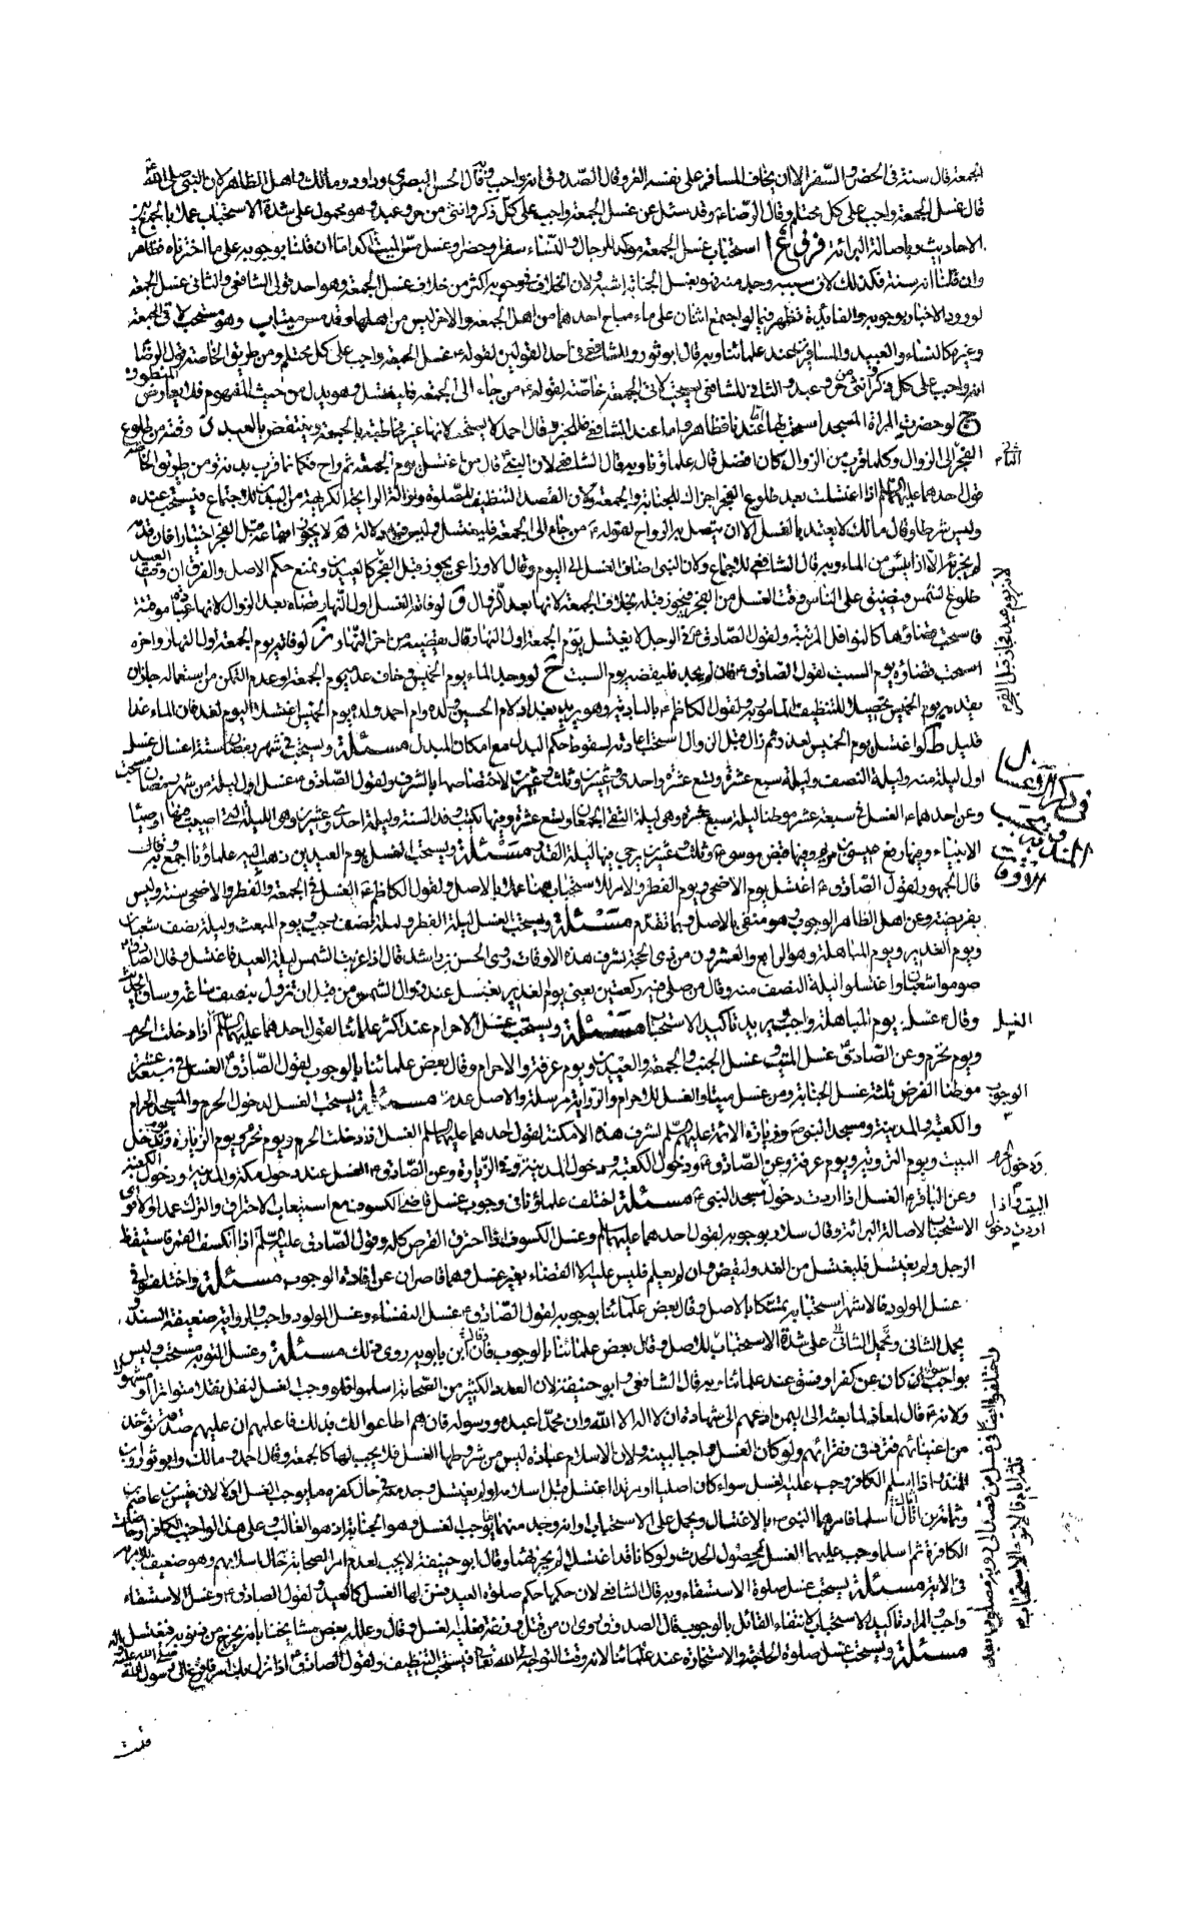 الجمعة قال سنة فى الحضر و السفر الا ان يخاف المسافر على نفسه القر وقال الصدوق انه واجب وبه قال الحسن البصرى وداود ومالك واهل الظاهر لان النبى صلى الله عليه
قال غسل الجمعة واجب على كل محتلم وقال الرضا ع وقد سئل عن غسل الجمعة واجب على كل ذكر وانثى من حر وعبد وهو محمول على شدة الاستحباب عملا بالجمع بين
الاحاديث وباصالة البرائة فروع ا استحباب غسل الجمعة مؤكد للرجال والنساء سفرا وحضرا وغسل مس الميت اكد اما ان قلنا بوجوبه على ما اخترناه فظاهر
وان قلنا انه سنة فكذلك لان سببه وجد منه فهو بغسل الجنابة اشبه ولان الخلاف فى وجوبه اكثر من خلاف غسل الجمعة وهو احد قولى الشافعى والثانى غسل الجمعة
لورود الاخبار بوجوبه والفائدة تظهر فيما لو اجتمع اثنان على ماء مباح احدهما من اهل الجمعة والاخر ليس من اهلها وقد مس ميتا ب وهو مستحب لاتى الجمعة
وغيره كالنساء والعبيد والمسافرين عند علمائنا وبه قال ابو ثور والشافعى فى احد القولين لقوله ع غسل الجمعة واجب على كل محتلم ومن طريق الخاصة قول الرضا
انه واجب على كل ذكر وانثى من حر وعبد والثانى للشافعى يستحب لاتى الجمعة خاصة لقوله ع من جاء الى الجمعة فليغتسل وهو يدل من حيث المفهوم فلا يعارض المنطوق
ج لو حضرت المراة المسجد استحب لها اما عندنا فظاهر واما عند الشافعى فللخبر وقال احمد لا يستحب لانها غير مخاطبة بالجمعة وينتقض بالعبد د وقته من طلوع
الفجر الى الزوال وكلما قرب من الزوال كان افضل قاله علماؤنا وبه قال الشافعى لان النبى قال من اغتسل يوم الجمعة ثم راح فكانما قرب بدنة ومن طريق الخاصة
قول احدهما عليهما السلام اذا اغتسلت بعد طلوع الفجر اجزاك للجنابة والجمعة ولان القصد التنظيف للصلوة وازالة الرايحة الكريهة من البدن للاجتماع فيستحب عنده
وليس شرطا وقال مالك لا يعتد بالغسل الا ان يتصل به الرواح لقوله ع من جاء الى الجمعة فليغتسل وليس فيه دلالة ه لا يجوز ايقاعه قبل الفجر اختيارا فان قدمه
لم يجزئه الا اذا يئس من الماء وبه قال الشافعى للاجماع ولان النبى اضاف الغسل الى اليوم وقال الاوزاعى يجوز قبل الفجر كالعيد ونمنع حكم الاصل والفرق ان وقت العيد
طلوع الشمس فيضيق على الناس وقت الغسل من الفجر فيجوز قبله بخلاف الجمعة لانها بعد الزوال و لو فاته الغسل اول النهار قضاه بعد الزوال لانها عبادة موقتة
فاستحب قضاؤها كالنوافل المرتبة ولقول الصادق ع فى الرجل لا يغتسل يوم الجمعة اول النهار قال يقضيه من اخر النهار ز لو فاته يوم الجمعة اول النهار واخره
استحب قضاؤه يوم السبت لقول الصادق ع فان لم يجد فليقضه يوم السبت ح لو وجد الماء يوم الخميس وخاف عدمه يوم الجمعة او عدم التمكن من استعماله جاز ان
يقدمه يوم الخميس تحصيلا للتنظيف المامور به ولقول الكاظم ع بالبادية وهو يريد بغداد لام الحسين ولده وام احمد ولده يوم الخميس اغتسلا اليوم لغد فان الماء غدا
قليل ط لو اغتسل يوم الخميس لعذر ثم زال قبل الزوال استحب اعادته لسقوط حكم البدل مع امكان المبدل مسئلة ويستحب فى شهر رمضان ستة اغسال غسل
اول ليلة منه وليلة النصف وليلة سبع عشرة وتسع عشرة واحدى وعشرين وثلث وعشرين لاختصاصها بالشرف ولقول الصادق ع غسل اول ليلة من شهر رمضان مستحب
وعن احدهما ع الغسل فى سبعة عشر موطنا ليلة سبع عشرة وهى ليلة التقى الجمعان وتسع عشرة وفيها يكتب وفد السنة وليلة احدى وعشرين وهى الليلة التى اصيب فيها اوصياء
الانبياء وفيها رفع عيسى بن مريم وفيها قبض موسى ع وثلث وعشرين يرجى فيها ليلة القدر مسئلة ويستحب الغسل يوم العيدين ذهب اليه علماؤنا اجمع وبه
قال الجمهور لقول الصادق ع اغتسل يوم الاضحى ويوم الفطر والامر للاستحباب هنا عملا بالاصل ولقول الكاظم ع الغسل فى الجمعة والفطر والاضحى سنة وليس
بفريضة وعن اهل الظاهر الوجوب وهو منفى بالاصل وبما تقدم مسئلة ويستحب الغسل ليلة الفطر وليلة نصف رجب ويوم المبعث وليلة نصف شعبان
ويوم الغدير ويوم المباهلة وهو الرابع والعشرون من ذى الحجة لشرف هذه الاوقات وروى الحسن بن راشد قال اذا غربت الشمس ليلة العيد فاغتسل وقال الصادق
صوموا شعبان واغتسلوا ليلة النصف منه وقال من صلى فيه ركعتين يعنى يوم الغدير يغتسل عند زوال الشمس من قبل ان تزول بنصف ساعة وساق الحديث
وقال ع غسل يوم المباهلة واجب ويريد تاكيد الاستحباب مسئلة ويستحب غسل الاحرام عند اكثر علمائنا لقول احدهما عليهما السلام اذا دخلت الحرم
ويوم تحرم وعن الصادق ع غسل الميت وغسل الجنب والجمعة والعيدين ويوم عرفة والاحرام وقال بعض علمائنا بالوجوب لقول الصادق ع الغسل فى سبعة عشر
موطنا الفرض ثلثة غسل الجنابة ومن غسل ميتا والغسل للاحرام والرواية مرسلة والاصل عدمه مسئلة يستحب الغسل لدخول الحرم والمسجد الحرام
والكعبة والمدينة ومسجد النبى ص وزيارة الائمة عليهم السلام لشرف هذه الامكنة لقول احدهما عليهما السلم الغسل اذا دخلت الحرم ويوم تحرم ويوم الزيارة ويوم تدخل
البيت ويوم التروية ويوم عرفة وعن الصادق ع ودخول الكعبة ودخول المدينة وفى الزيارة وعن الصادق ع الغسل عند دخول مكة والمدينة ودخول الكعبة
وعن الباقر ع الغسل اذا اردت دخول مسجد النبى ص مسئلة اختلف علماؤنا فى وجوب غسل قاضى الكسوف مع استيعاب الاحتراق والترك عمدا والاقوى
الاستحباب لاصالة البرائة وقال سلار بوجوبه لقول احدهما عليهما السلم وغسل الكسوف اذا احترق القرص كله وقول الصادق عليه السلم اذا انكسف القمر فاستيقظ
الرجل ولم يغتسل فليغتسل من الغد وليقض وان لم يعلم فليس عليه الا القضاء بغير غسل وهما قاصران عن افادة الوجوب مسئلة واختلفوا فى
غسل المولود فالاشهر استحبابه تمسكا بالاصل وقال بعض علمائنا بوجوبه لقول الصادق ع غسل النفساء وغسل المولود واجب والرواية ضعيفة السند و
يحمل الثانى على شدة الاستحباب للاصل وقال بعض علمائنا بالوجوب قال ابن بابويه روى ذلك مسئلة وغسل التوبة مستحب وليس
بواجب سواء كان عن كفر او فسق عند علمائنا وبه قال الشافعى وابو حنيفة لان العدد الكثير من الصحابة اسلموا فلو وجب الغسل لنقل نقلا متواترا او مشهورا
ولانه ع قال لمعاذ لما بعثه الى اليمن ادعهم الى شهادة ان لا اله الا الله وان محمدا عبده ورسوله فان هم اطاعوا لك بذلك فاعلمهم ان عليهم صدقة تؤخذ
من اغنيائهم فترد فى فقرائهم ولو كان الغسل واجبا لبينه ولان الاسلام عبادة ليس من شرطها الغسل فلا يجب لها كالجمعة وقال احمد ومالك وابو ثور وابن
المنذر اذا اسلم الكافر وجب عليه الغسل سواء كان اصليا او مرتدا اغتسل قبل اسلامه او لم يغتسل وجد منه فى حال كفره ما يوجب الغسل او لا لان قيس بن عاصم
وثمامة بن اثال اسلما فامرهما النبى ص بالاغتسال ويحمل على الاستحباب وانه وجد منهما ما يوجب الغسل وهو الجنابة اذ هو الغالب وعلى هذا لو اجنب الكافر او حاضت
الكافرة ثم اسلما وجب عليهما الغسل لحصول الحدث ولو كانا قد اغتسلا لم يجزئهما وقال ابو حنيفة لا يجب لعدم امر الصحابة حال اسلامهم وهو ضعيف للامر به
فى الاية مسئلة يستحب غسل صلوة الاستسقاء وبه قال الشافعى لان حكمها حكم صلوة العيد فسن لها الغسل كالعيد ولقول الصادق ع وغسل الاستسقاء
واجب والمراد تاكيد الاستحباب لانتفاء القائل بالوجوب قال الصدوق روى ان من قتل وزغة فعليه الغسل وقال وعلله بعض مشايخنا بانه يخرج من ذنوبه فيغتسل
مسئلة ويستحب غسل صلوة الحاجة والاستخارة عند علمائنا لانه وقت التوجه الى الله تعالى فيستحب التنظيف ولقول الصادق ع اذا نزل بك امر فافزع الى رسول الله صلى الله عليه وآله
الثانى
لانه يوم عيد فجاز قبل الفجر
فى ذكر الاغسال
المندوبة بحسب
الاوقات
الغسل
الوجوب
ودخول الحرم
البيت واذا
اردت دخول
واختلفوا ايضا فى غسل من قصد الى رؤية مصلوب بعد
ثلثة ايام فالاقوى الاستحباب
قلت